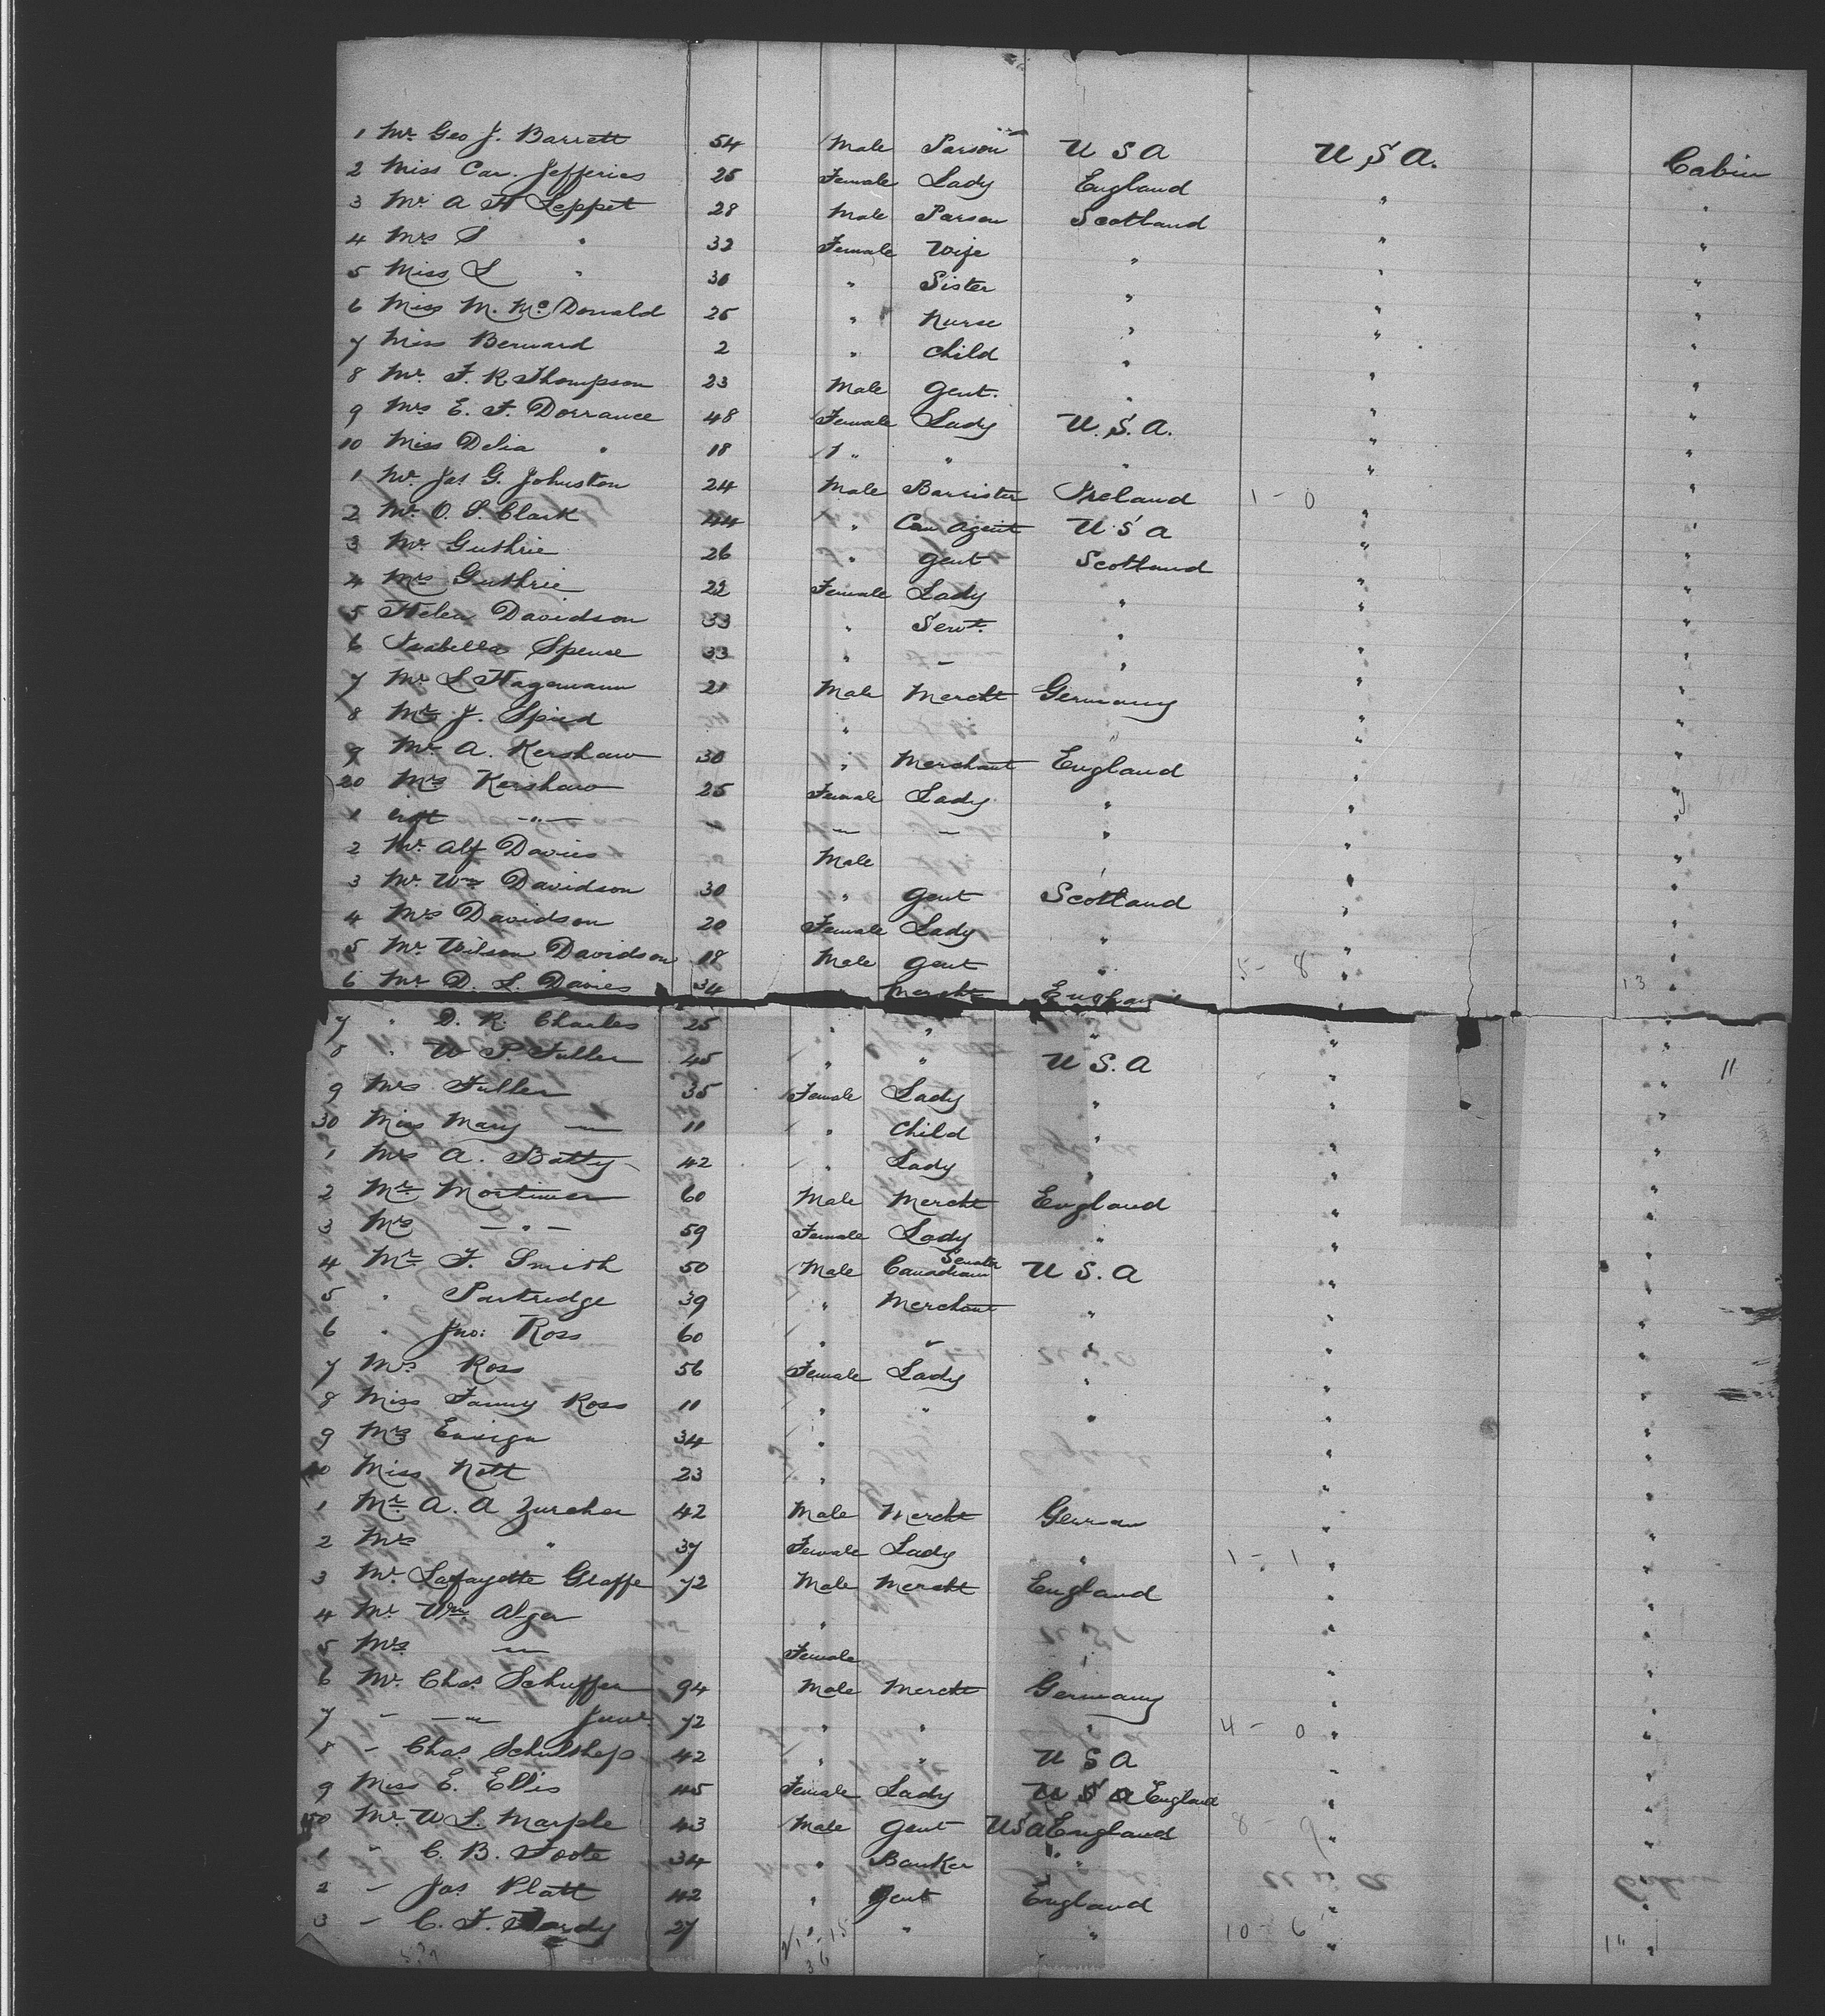 1 Mr. Geo J. Barrett 54 Male Parson U S A U.S.A. Cabin
2 Miss Car. Jefferies 25 Female Lady England " "
3 Mr. A H Leppet 28 Male Parson Scotland " "
4 Mrs S " 32 Female Wife " " "
5 Miss L " 30 " Sister " " "
6 Miss M. McDonald 25 " Nurse " " "
7 Miss Bernard 2 " Child " " "
8 Mr. F. R. Thompson 23 Male Gent. " " "
9 Mrs E. F. Dorrance 48 Female Lady U.S.A. " "
10 Miss Delia " 18 " " " " "
1 Mr. Jas G. Johnston 24 Male Barrister Ireland 1 - 0 " "
2 Mr. O. S. Clark 44 " Com Agent U S A " "
3 Mr. Guthrie 26 " Gent Scotland " "
4 Mrs Guthrie 22 Female Lady " " "
5 Helen Davidson 33 " Servt. " " "
6 Isabella Spence 33 " - " " "
7 Mr L Hagemann 21 Male Mercht Germany " "
8 Mr J. Spied " " " "
9 Mr. A. Kershaw 30 " Merchant England " "
20 Mrs Kershaw 25 Female Lady " " "
1 inft - " - — — " " "
2 Mr. Alf Davies Male " " "
3 Mr. Wm Davidson 30 " Gent Scotland " "
4 Mrs Davidson 20 Female Lady " " "
5 Mr. Wilson Davidson 18 Male Gent " 5 - 8 " "
6 Mr D. L. Davies 34 " Mercht England " 13 "
7 " D. R. Charles 25 " " " " "
8 " W P. Fuller 45 " " U S. A " " 11
9 Mrs Fuller 35 Female Lady " " "
30 Miss Mary — 11 " Child " " "
1 Mrs A. Batty 42 " Lady " " "
2 Mr Mortimer 60 Male Mercht England " "
3 Mrs - " - 59 Female Lady " " "
4 Mr F. Smith 50 Male Canadian Senator U S. A " "
5 " Partridge 39 " Merchant " " "
6 " Jno: Ross 60 " " " " "
7 Mrs. Ross 56 Female Lady " " "
8 Miss Fanny Ross 11 " " " " "
9 Mrs Ensign 34 " " "
40 Miss Nott 23 " " "
1 Mr A. A Zurcher 42 Male Mercht German " "
2 Mrs " 37 Female Lady " 1 - 1 " "
3 Mr. Lafayette Graffe 72 Male Mercht England " "
4 Mr Wm. Alger " " "
5 Mrs — Female " " "
6 Mr. Chas. Schuffer 94 Male Mercht Germany " "
7 " — Junr. 72 " " " 4 - 0 " "
8 - Chas Schulthess 42 " " U S A " "
9 Miss E. Ellis 45 Female Lady U S A England " "
50 Mr. W L. Marple 43 Male Gent USA England 8 - 9 " "
1 " C. B. Foote 34 " Banker " " "
2 - Jas Platt 42 " Gent England " "
3 - C. F. Hardy 27 " " " 10 - 6 " 11 "